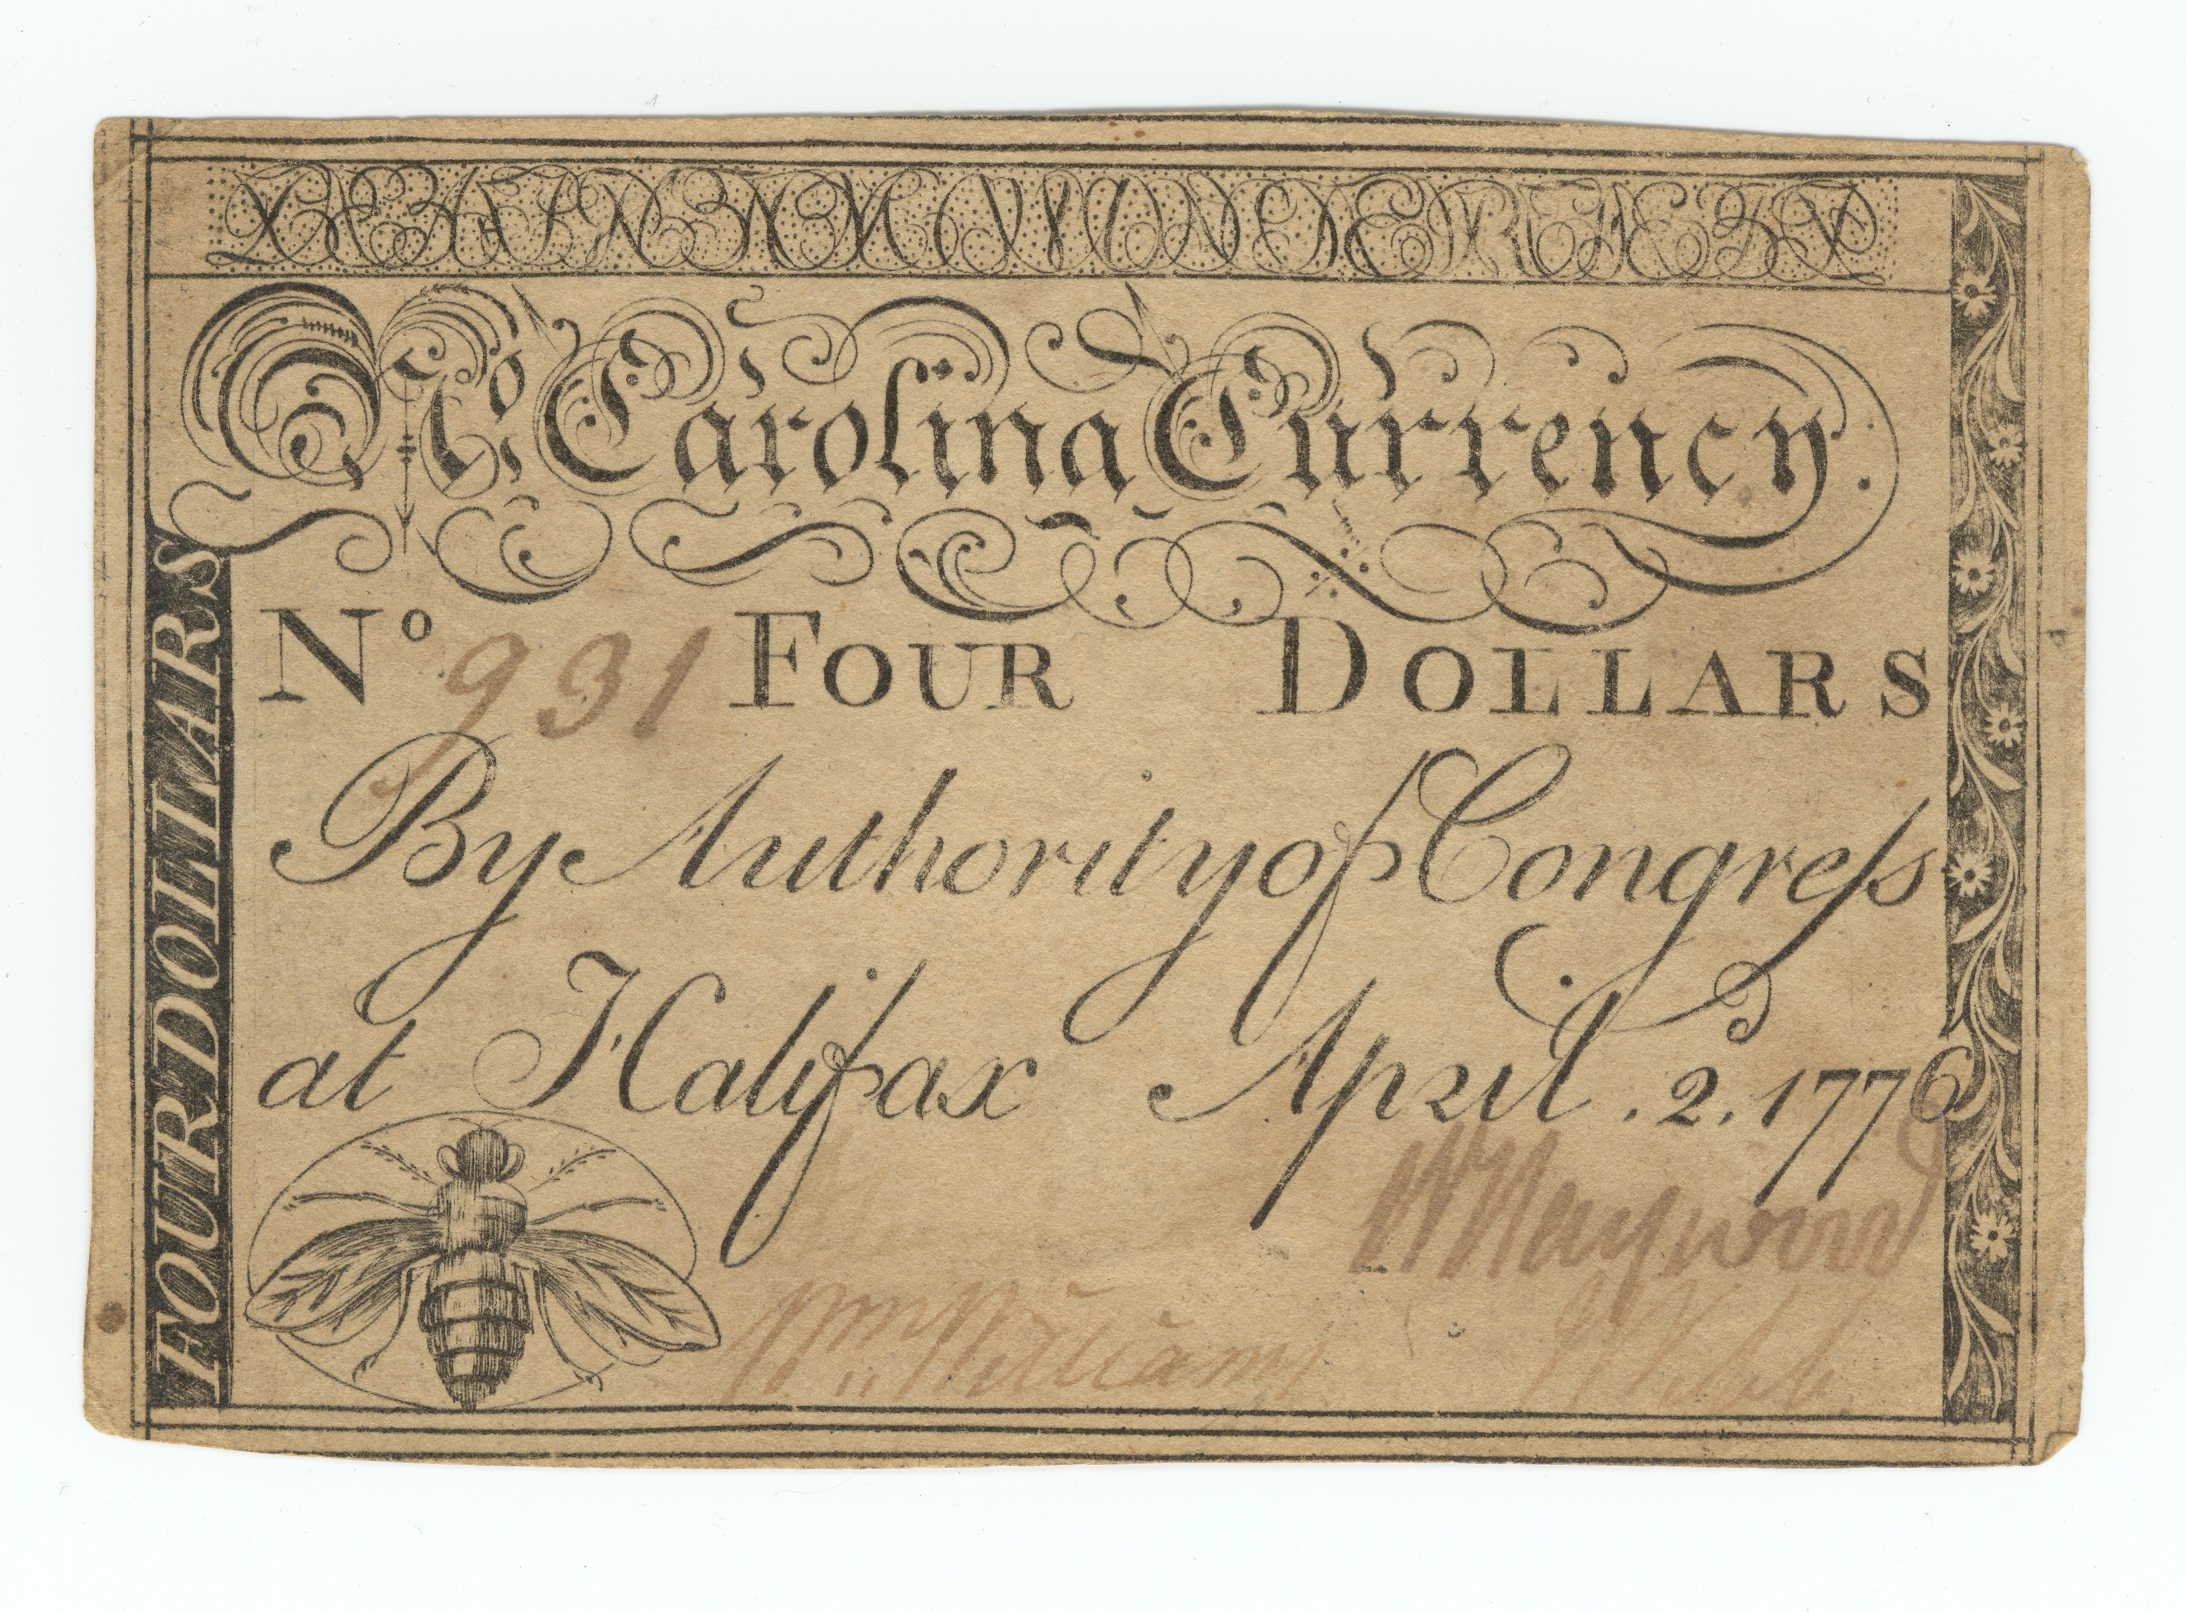 No Carolina Currency.
No 931 FOUR DOLLARS
By Authority of Congreſs
at Halifax April . 2. 1776
FOUR DOLLARS
W Haywood
Wm Williams
W Webb.